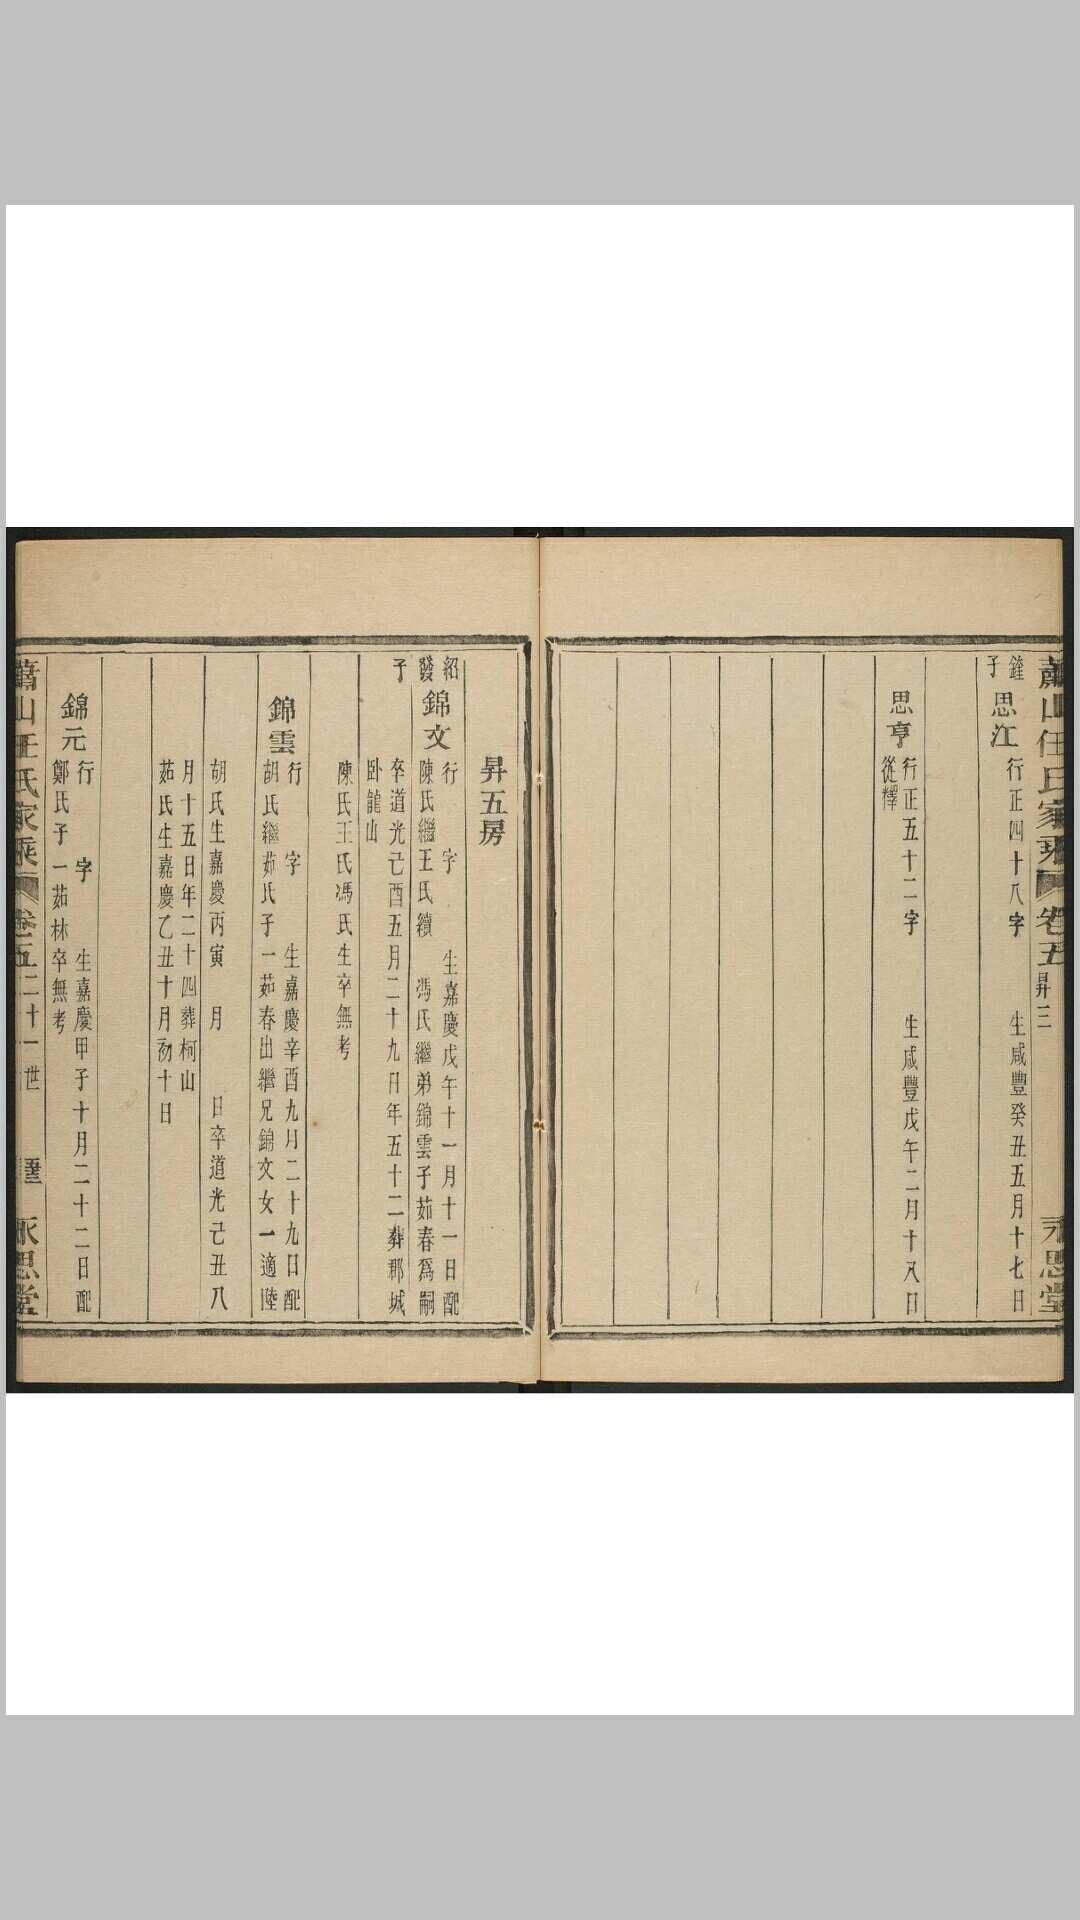 蕭山任氏家乘
卷五
昇三
永思堂
鍾子
思江
行正四十八字 生咸豐癸丑五月十七日
思亨
行正五十二字 生咸豐戊午二月十八日
從釋
昇五房
紹發子
錦文
行 字 生嘉慶戊午十一月十一日配
陳氏繼王氏續 馮氏繼弟錦雲子茹春爲嗣
卒道光己酉五月二十九日年五十二葬郡城
卧龍山
陳氏王氏馮氏生卒無考
錦雲
行 字 生嘉慶辛酉九月二十九日配
胡氏繼茹氏子一茹春出繼兄錦文女一適陸
胡氏生嘉慶丙寅 月 日卒道光己丑八
月十五日年二十四葬柯山
茹氏生嘉慶乙丑十月初十日
錦元
行 字 生嘉慶甲子十月二十二日配
鄭氏子一茹林卒無考
蕭山任氏家乘
卷五
二十一世
永思堂